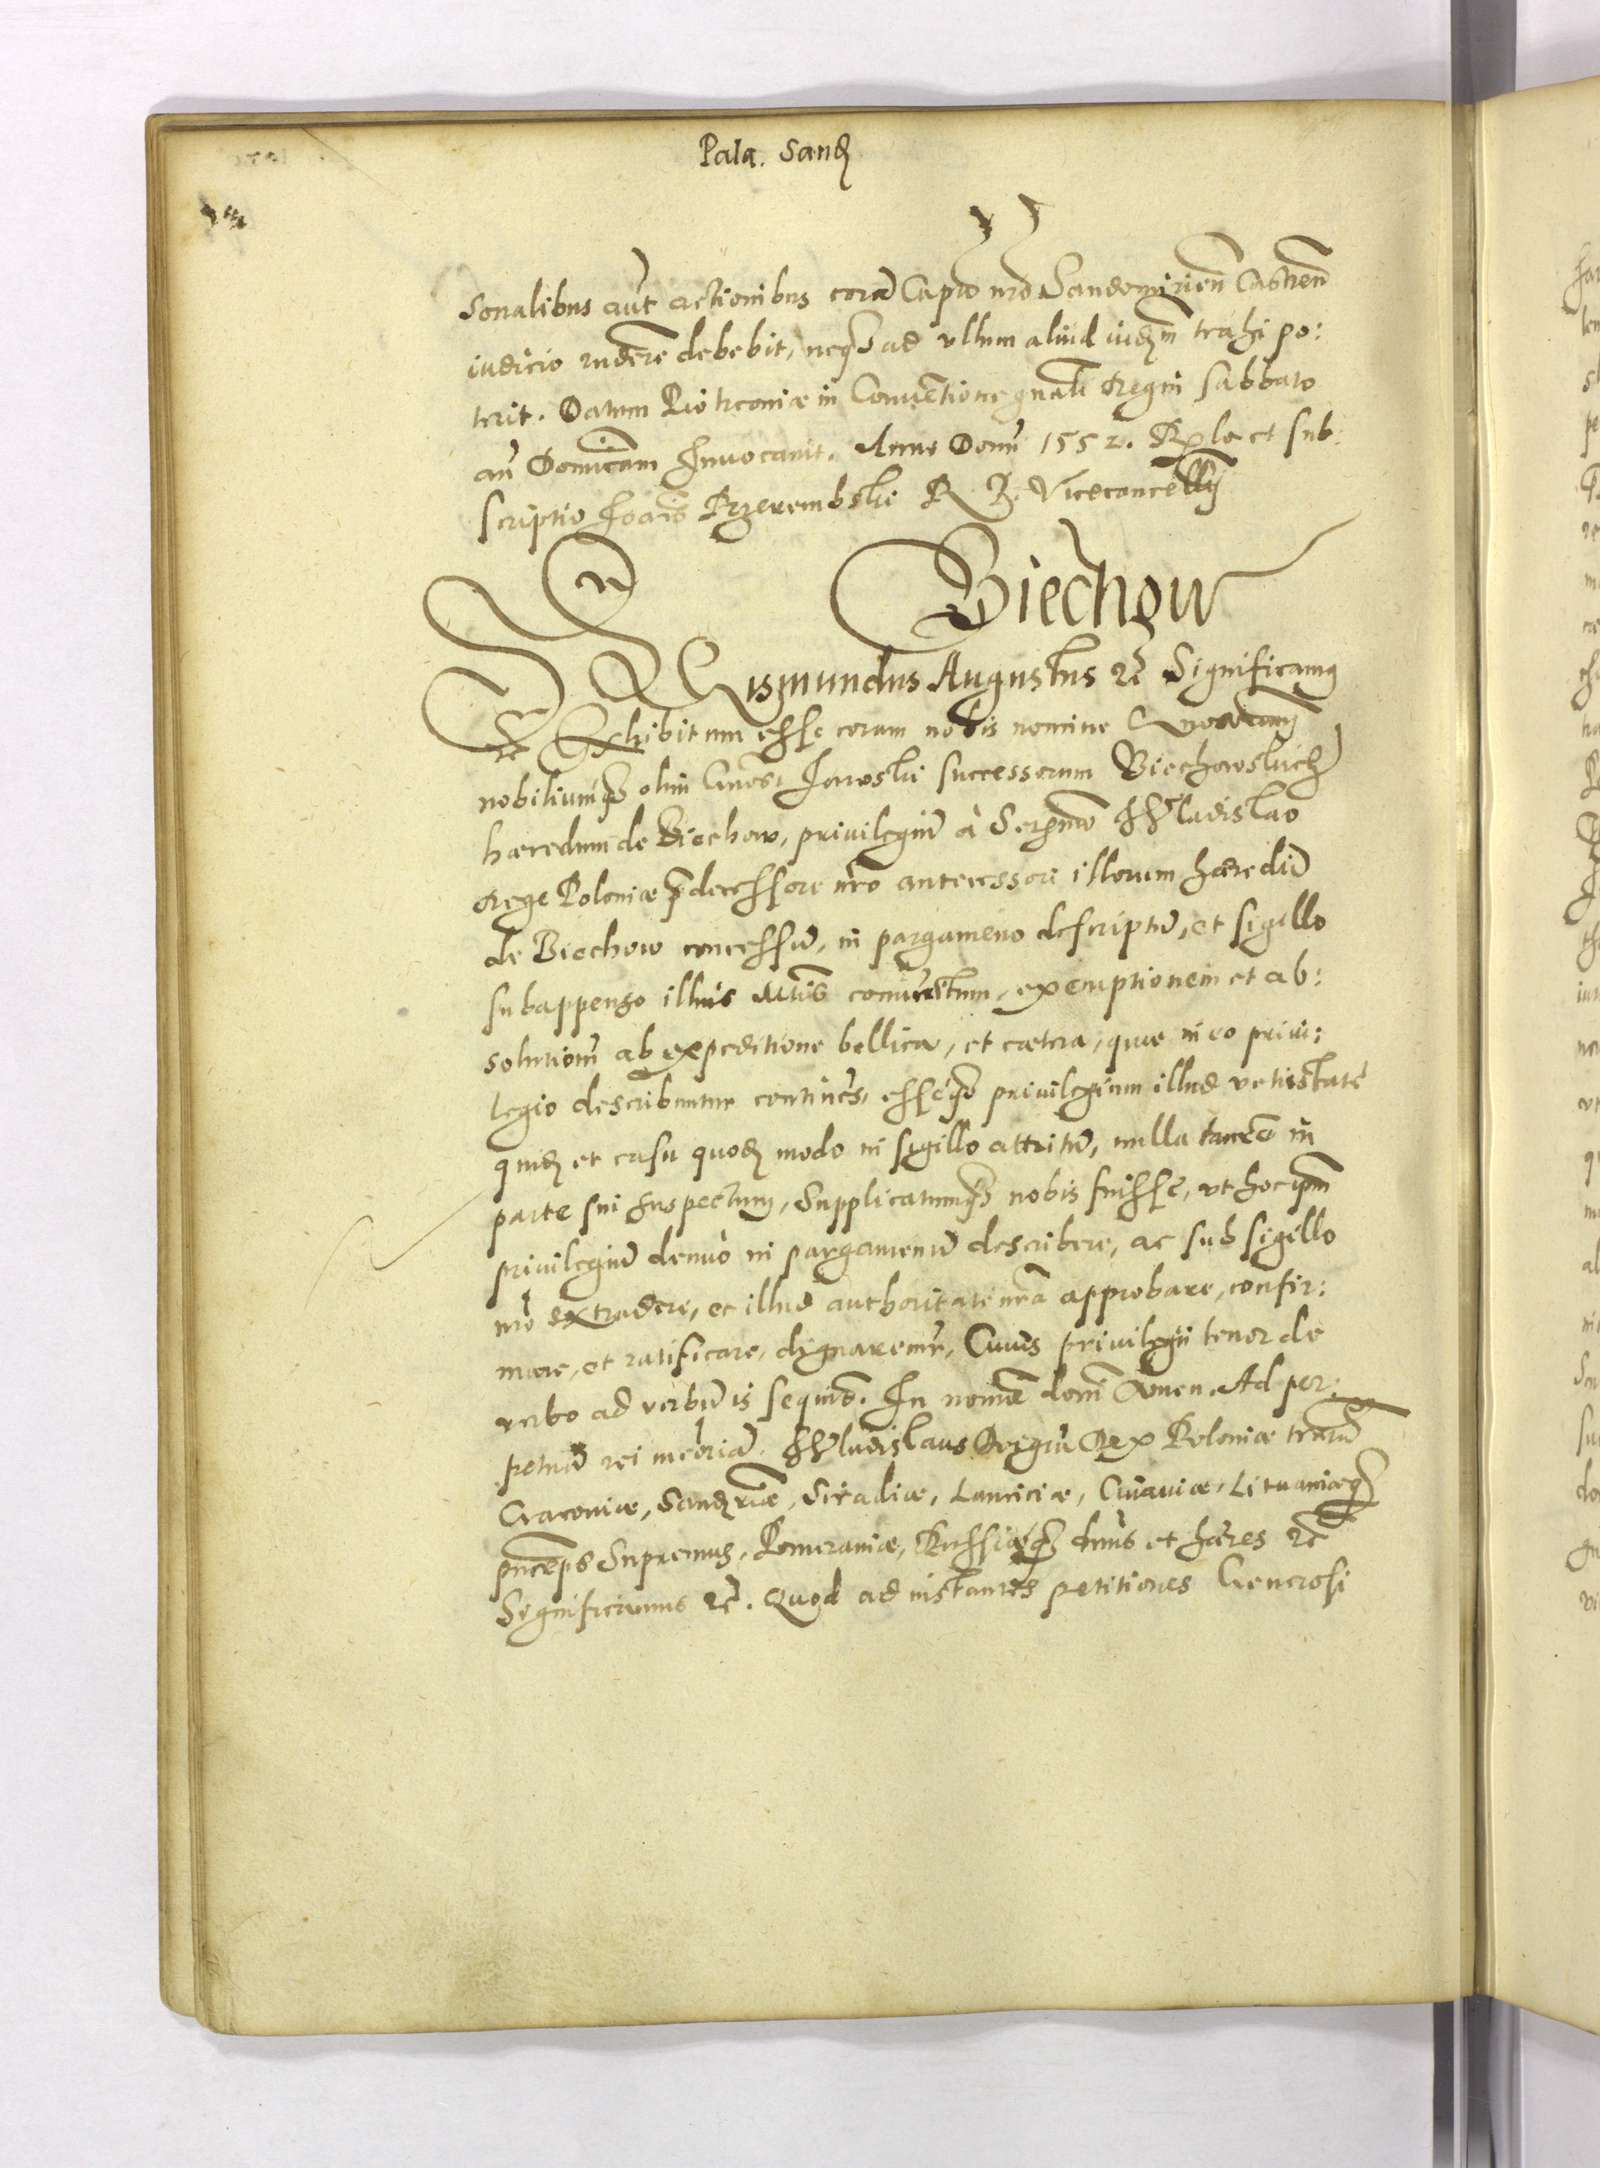 Pala. Sand
sonalibus aut actionibus corā Capto nrō Sandomirien̄ Castren̄
iudicio rndere debebit, neq3 ad vllum aliud iudm̄ trahi po:
terit. Datum Piotrconiæ in Conuentione gnali Regni sabbato
an̄ Domicam Inuocauit. Anno Domi 1552. Rla et sub:
scriptio Joāis Przerembski R. P. Vicecancelly
Biechow
Sigismundus Augustus rc̄ Significamus
Exhibitum esse coram nobis nomine
nobiliumq3 olim Jaroski successorum Biechowskich
hæredum de Biechow, priuilegiū à Sermo Wladislao
Rege Poloniæ pdecessore nrō antecessori illorum hæredū
de Biechow concessū, in pargameno descriptū, et sigillo
subappenso illius Mtis comunitum, exemptionem et ab:
solutionē ab expeditione bellica, et cætera, quæ in eo priui:
legio describuntur continēs, esseq3 priuilegium illud vetustate
quid et casu quod modo in sigillo attritū, nulla tamē in
parte sui suspectum, Supplicatumq3 nobis fuisse, vt hoc ipm̄
priuilegiū denuò in pargamenū describere, ac sub sigillo
nrō extradere, et illud authoritate nrā approbare, confir:
mare, et ratificare, dignaremur, Cuius priuilegii tenor de
verbo ad verbū is sequitr. In nomīe domī Amen. Ad per:
petuā rei meōriā. Wladislaus Dei gra Rex Poloniæ trarū
Cracouiæ, Sandriæ, Siradiæ, Lanciciæ, Cuiauiæ, Lituaniæq3
prnceps Supremus, Pomeraniæ, Russiæq3 dnus et hæres rc̄
Significamus rc̄. Quod ad instantes petitiones Generosi